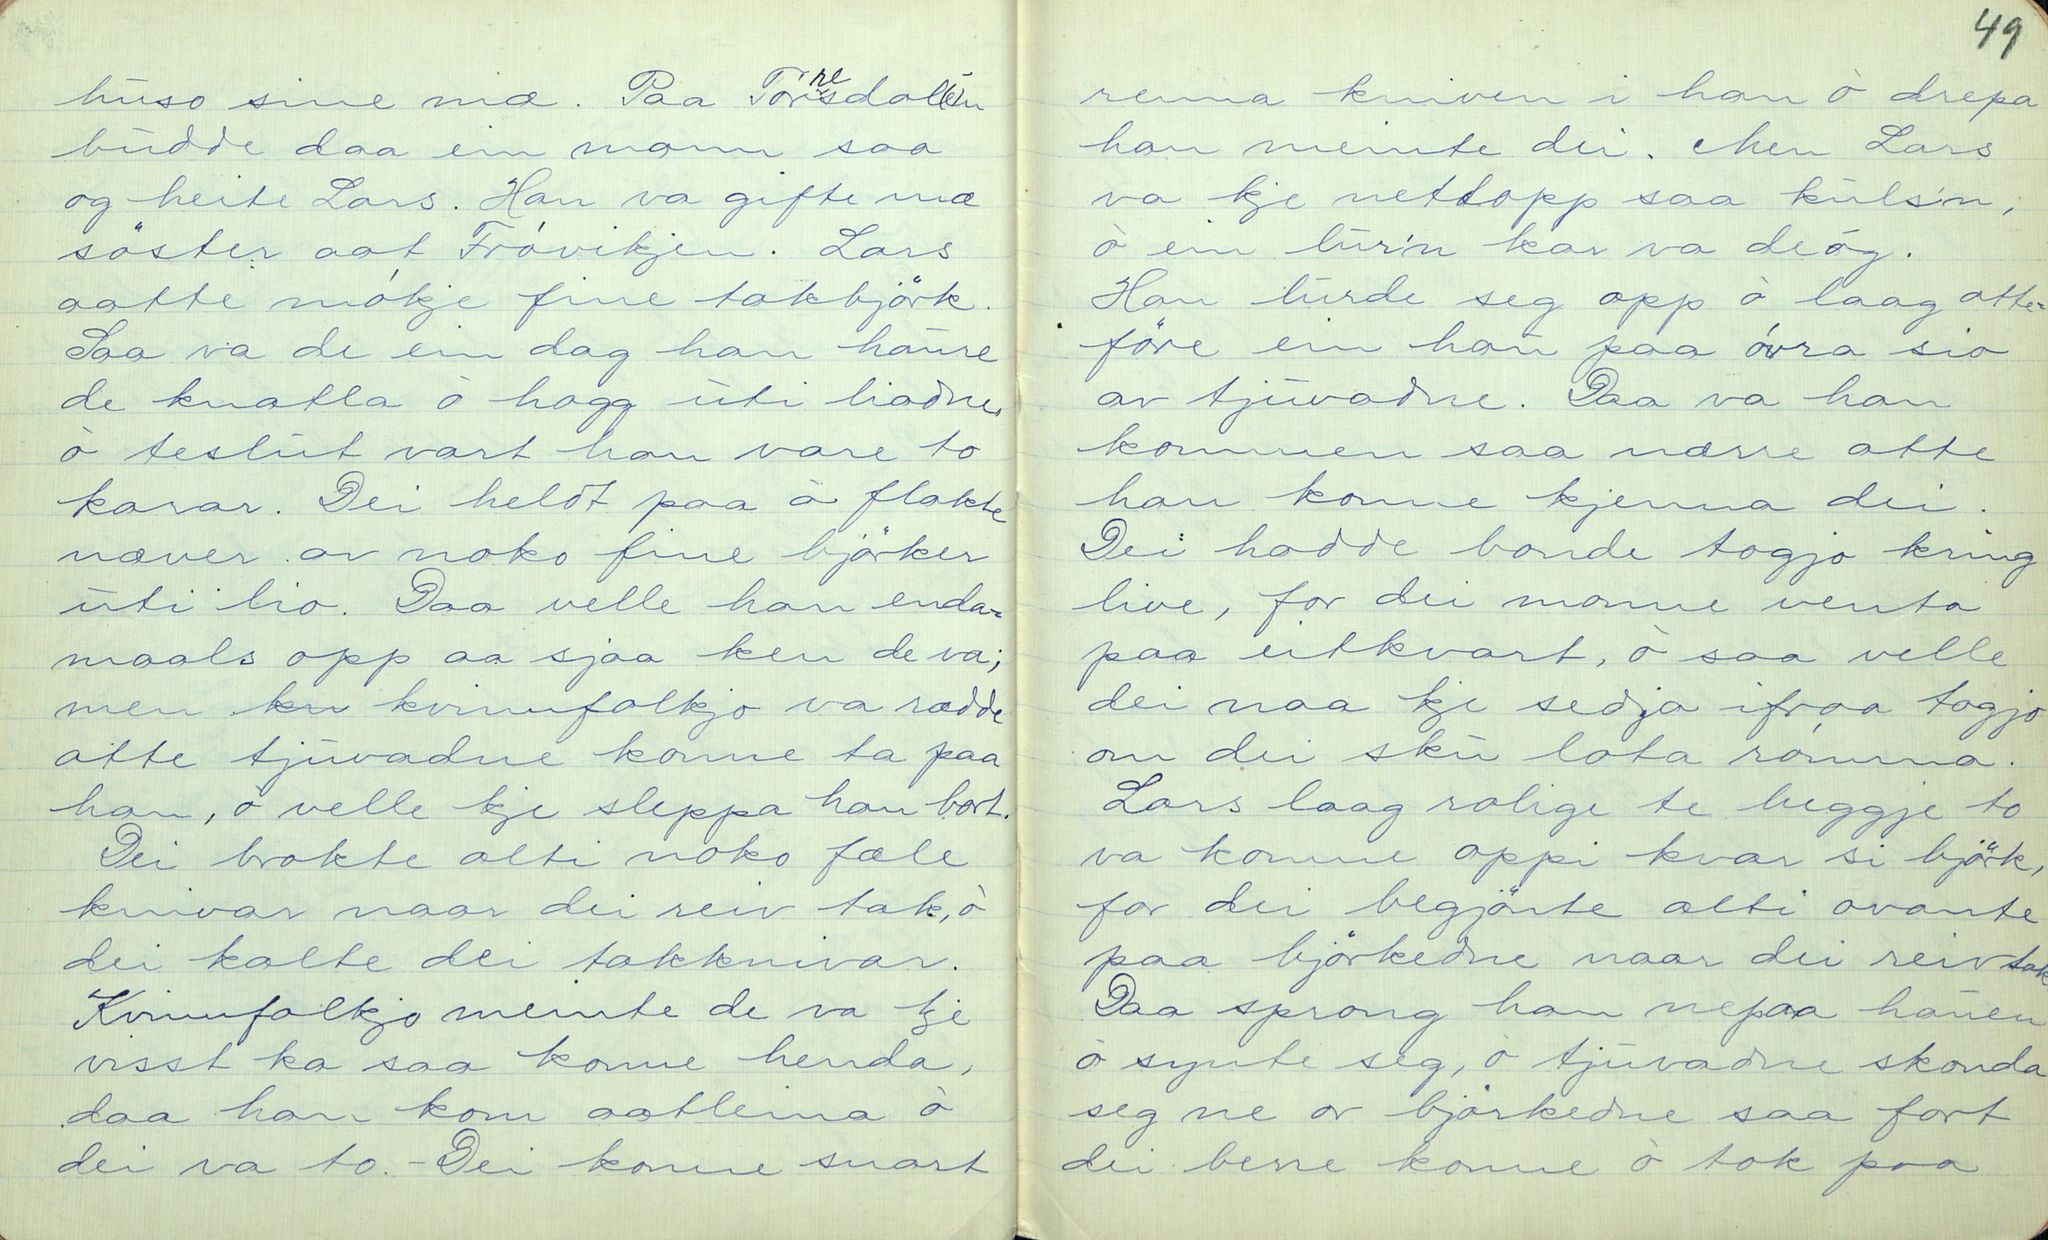 huso sine mæ. Paa Torresdal(e)n
budde daa ein mann saa
og heite Lars. Han va gifte mæ
söster aat Fróvikjen. Lars
aatte mókje fine takbjörk.
Saa va de ein dag han háure
de knatla ò hogg uti liadne,
ò teslut vart han vare to
karar. Dei heldt paa ò flakte
næver av noko fine björker
uti lio. Daa velle han enda=
maals opp aa sjaa ken de va;
men kv kvinnfolkjo va rædde
atte tjuvadne konne ta paa
han, ò velle kje sleppa han bort.
Dei brokte alti noko fæle
knivar naar dei reiv tak, ò
dei kalte dei takknivar.
Kvinnfolkjo meinte de va kje
visst ka saa konne henda,
daa han kom aatleina ò
dei va to. - Dei konne snart
49
renna kniven i han ò drepa
han meinte dei. Men Lars
va kje nettopp saa kuls'n,
ò ein lur'n kar va deóg.
Han lurde seg opp ò laag atte=
före ein hau paa óvra sio
av tjuvadne. Daa va han
kommen saa nærre atte
han konne kjenna dei.
Dei hadde bonde togjo kring
live, for dei monne venta
paa eitkvart, ò saa velle
dei naa kje sedja ifraa togjo
om dei sku lata rómma.
Lars laag rolige te beggje to
va komne oppi kvar si björk,
for dei begjönte alti ovante
paa björkedne naar dei reiv tak
Daa sprong han nepaa hauen
ò synte seg, ò tjuvadne skonda
seg ne or björkedne saa fort
dei berre konne ò tok paa